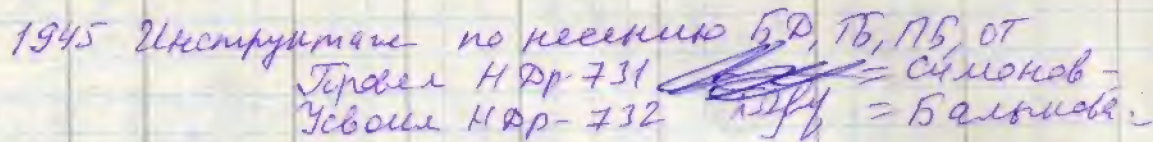 1945 Инструктаж по несению БД, ТБ, ПБ, ОТ
Провел НДр-731 = Симонов =
Усвоил НДр-732 = Балыкова =